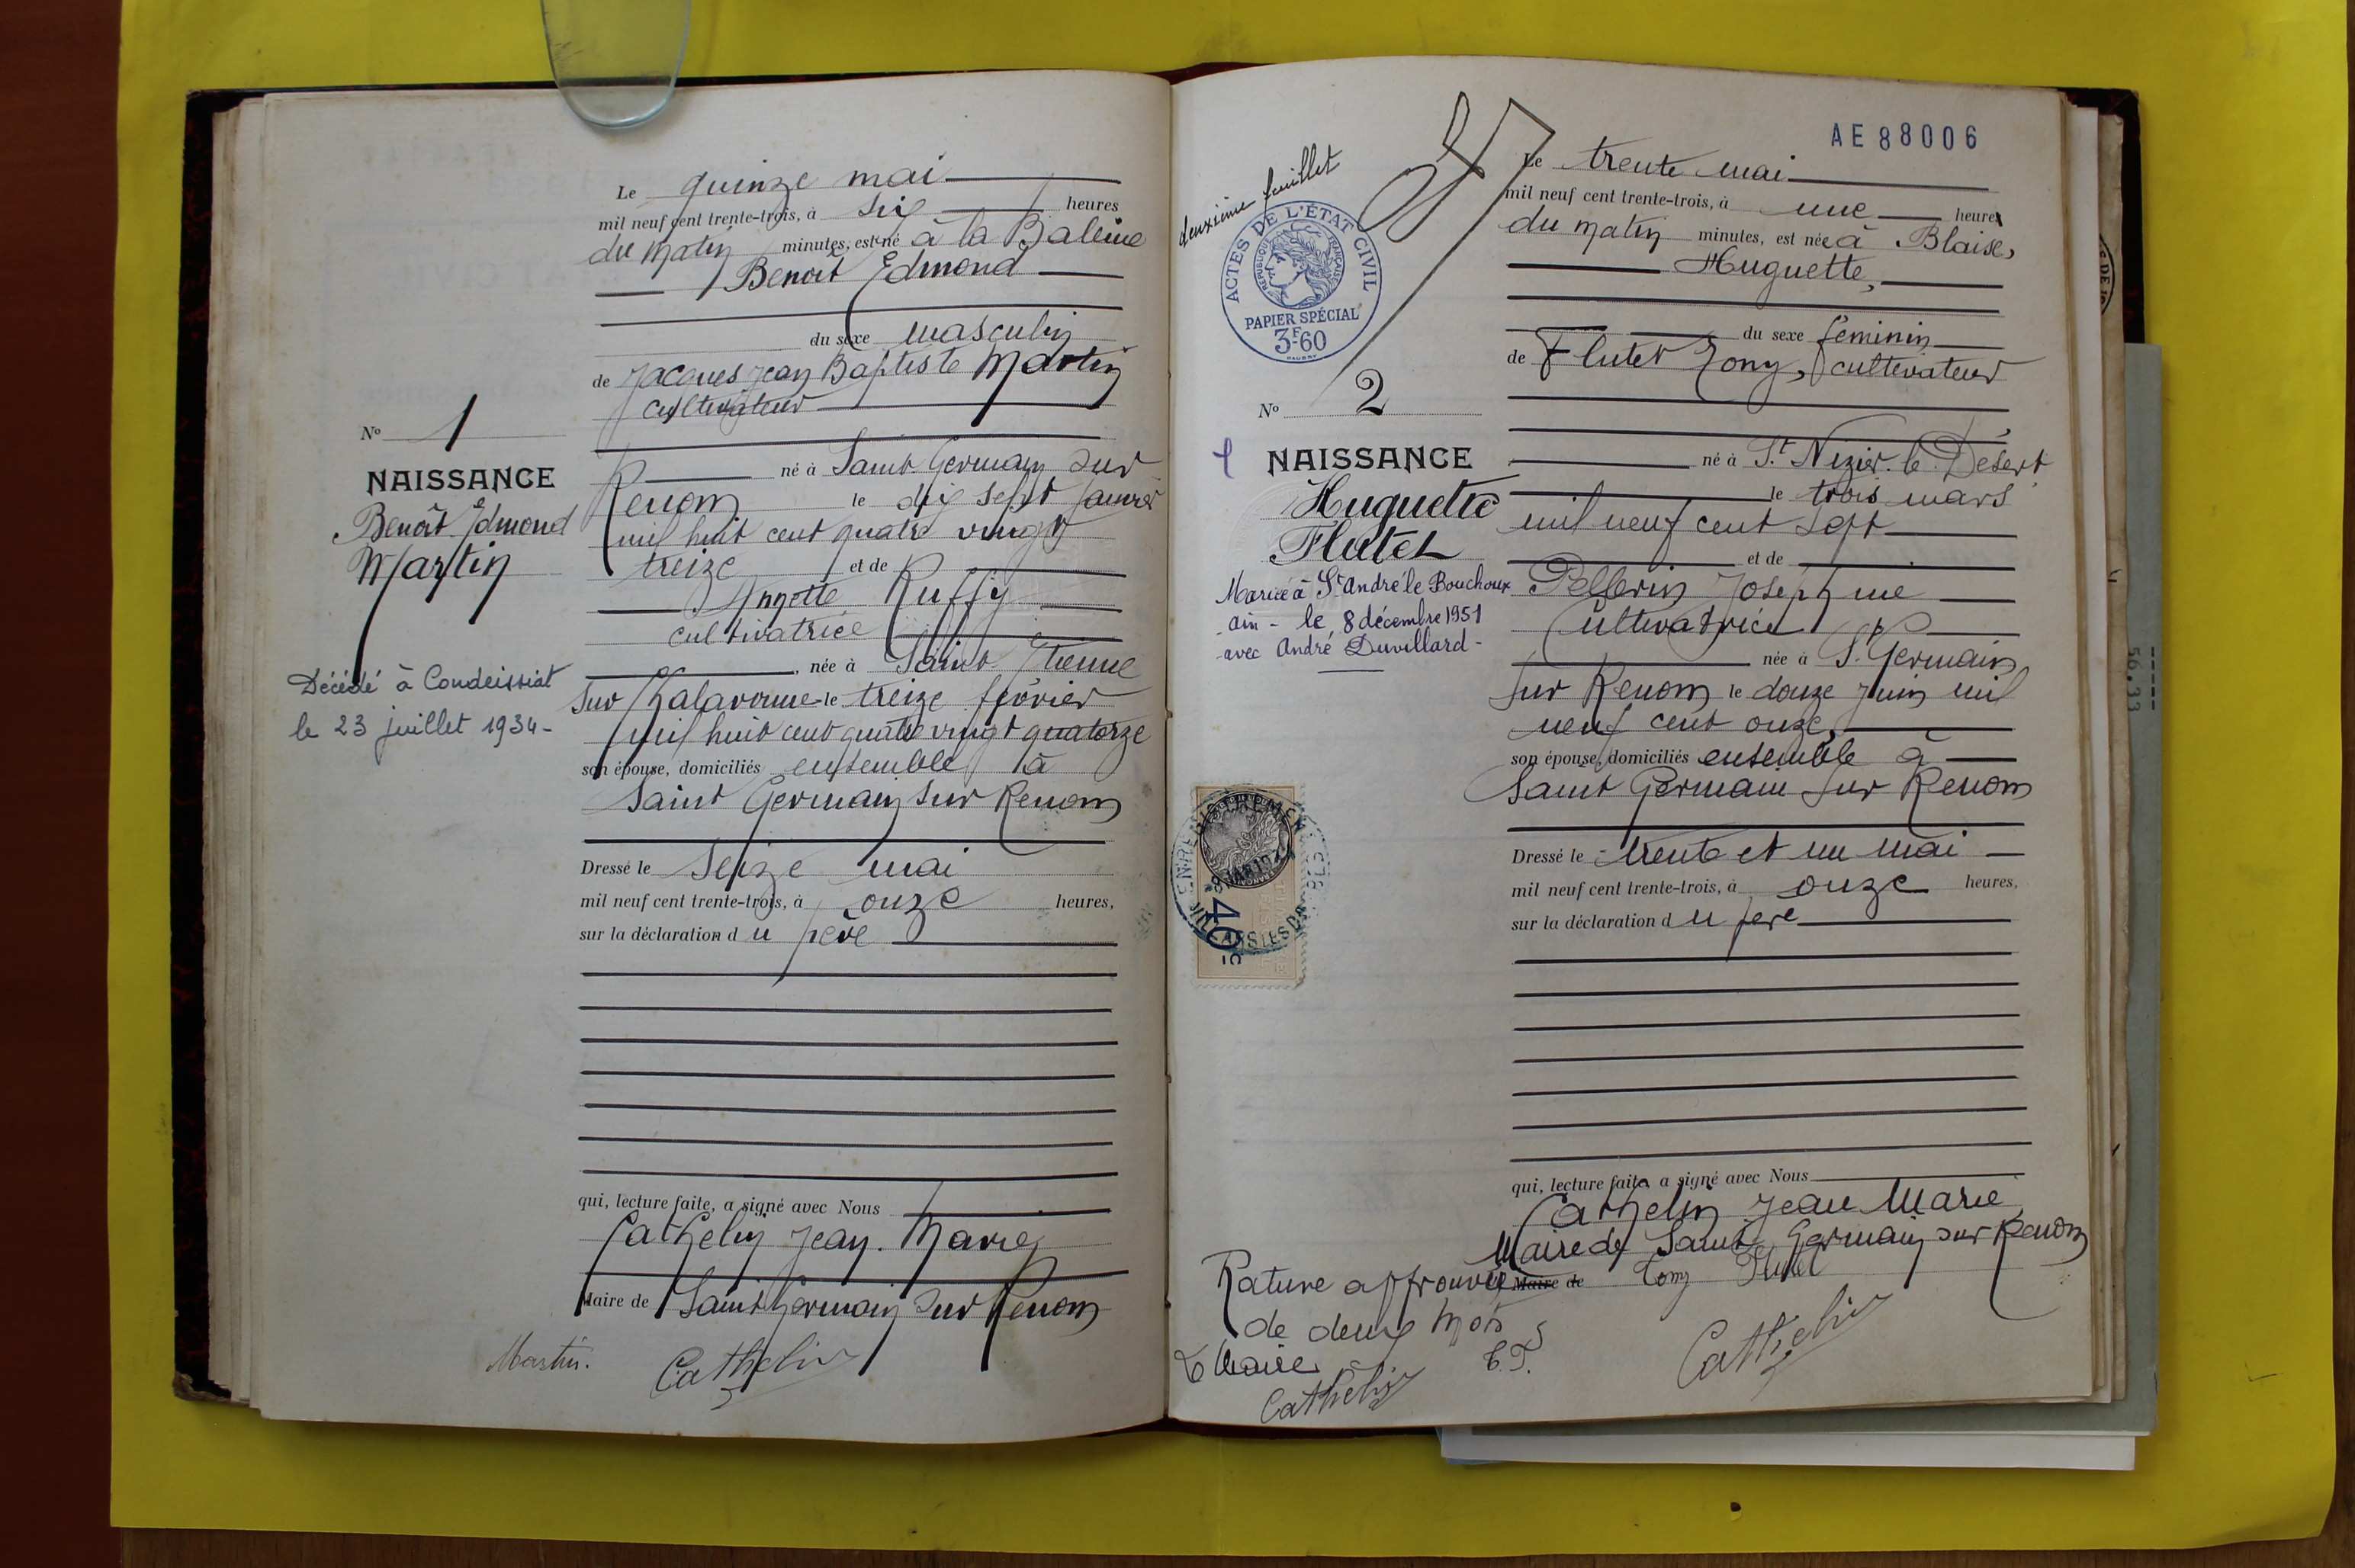 Le quinze mai
mil neuf cent trente-trois, à six heures
du matin minutes, est né à la Baleine
Benoît Edmond
du sexe masculin
de Jacques Jean Baptiste Martin
cultivateur
né à Saint Germain sur
Renom le dix sept janvier
mil huit cent quatre vingt
treize et de
Annette Ruffy
cultivatrice
née à Saint Etienne
sur Chalaronne le treize février
mil huit cent quatre vingt quatorze
son épouse, domiciliés ensemble à
Saint Germain sur Renom
Dressé le seize mai
mil neuf cent trente-trois, à onze heures,
sur la déclaration du père
qui, lecture faite, a signé avec Nous
Cathelin Jean. Marie
Maire de Saint Germain sur Renom
Martin. Cathelin
No 1
NAISSANCE
Benoît Edmond
Martin
Décédé à Condeissiat
le 23 juillet 1934-
AE88006
deuxième feuillet
ACTES DE L'ÉTAT CIVIL
RÉPUBLIQUE FRANÇAISE
PAPIER SPÉCIAL
3F60
No 2
NAISSANCE
Huguette
Flutet
Mariée à St André le Bouchoux
- ain - le 8 décembre 1951
- avec André Duvillard -
40
Le trente mai
mil neuf cent trente-trois, à une heures
du matin minutes, est née à Blaise,
Huguette,
du sexe féminin
de Flutet Tony, cultivateur
né à St. Nizier le Désert
le trois mars
mil neuf cent sept
et de
Pellerin Josephine
Cultivatrice
née à S. Germain
sur Renom le douze juin mil
neuf cent onze,
son épouse, domiciliés ensemble à
Saint Germain sur Renom
Dressé le trente et un mai
mil neuf cent trente-trois, à onze heures,
sur la déclaration du père
qui, lecture faite a signé avec Nous
Cathelin Jean Marie
Maire de Saint Germain sur Renom
Maire de Tony Flutet
Rature approuvée
de deux mots
Le Maire
Cathelin
Cathelin
56.33